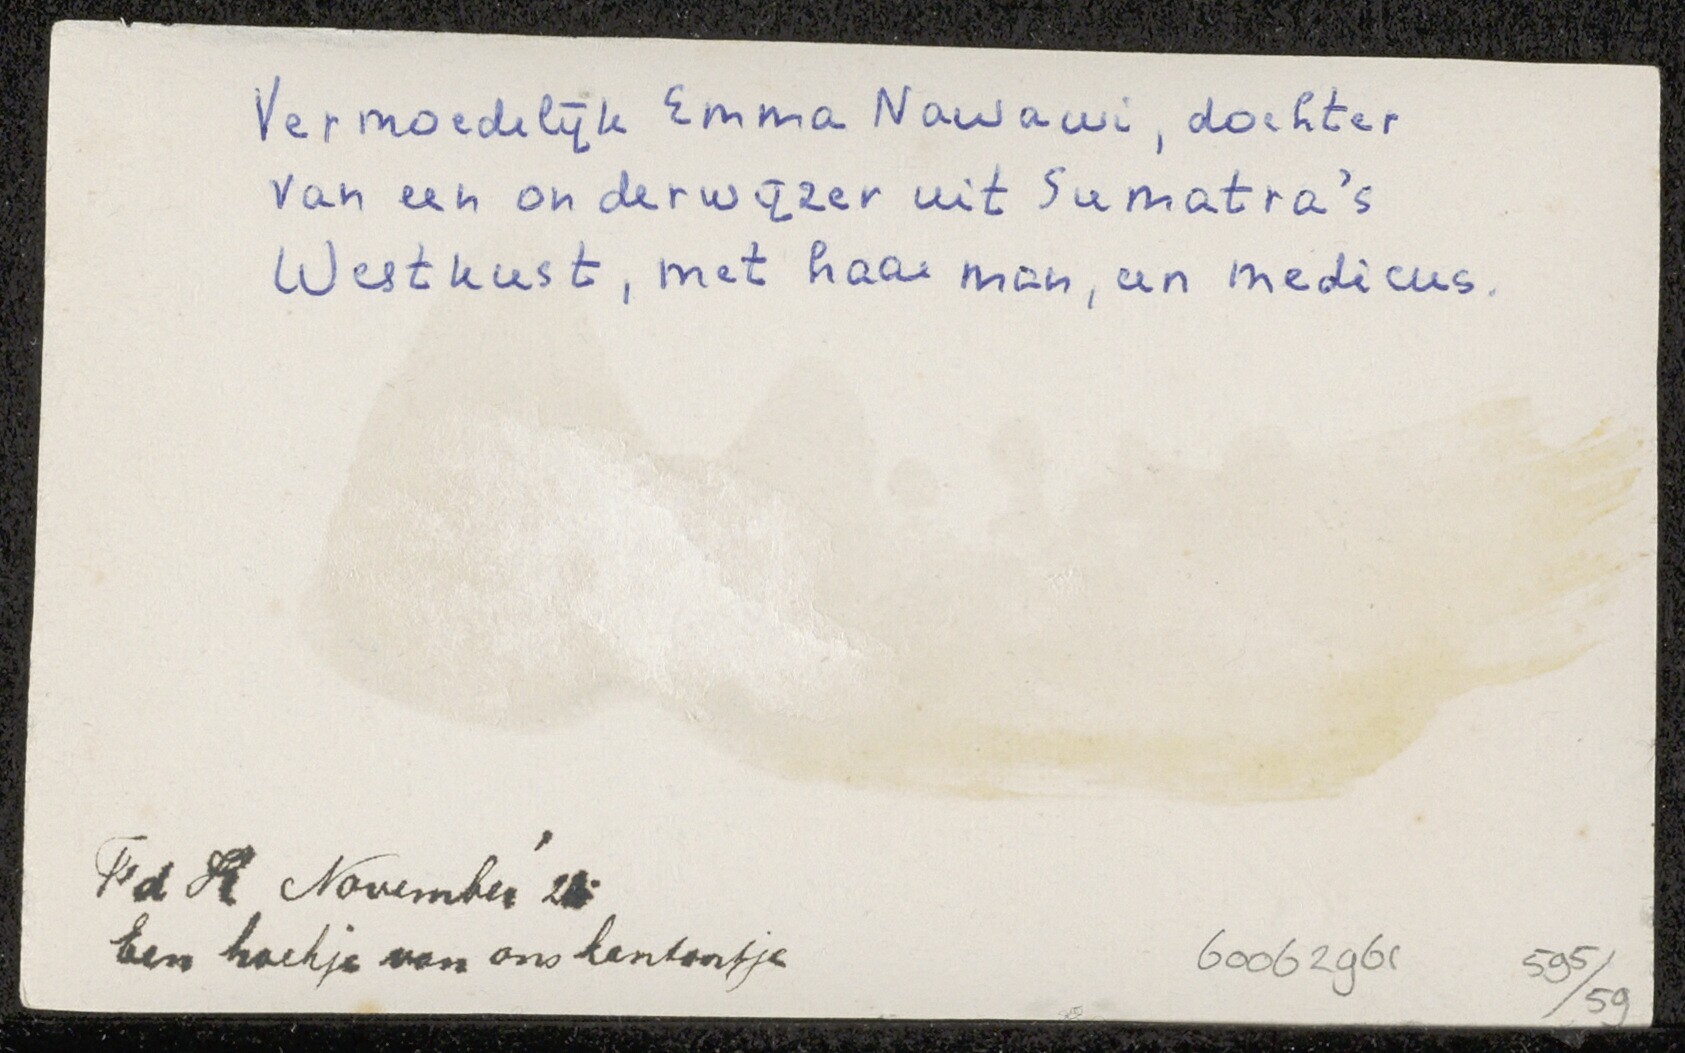 Vermoedelijk Emma Nawawi, dochter
van een onderwijzer uit Sumatra's
Westkust, met haar man, een medicus.
F d K November '2
Een hoekje van ons kantoortje
60062961
595/59